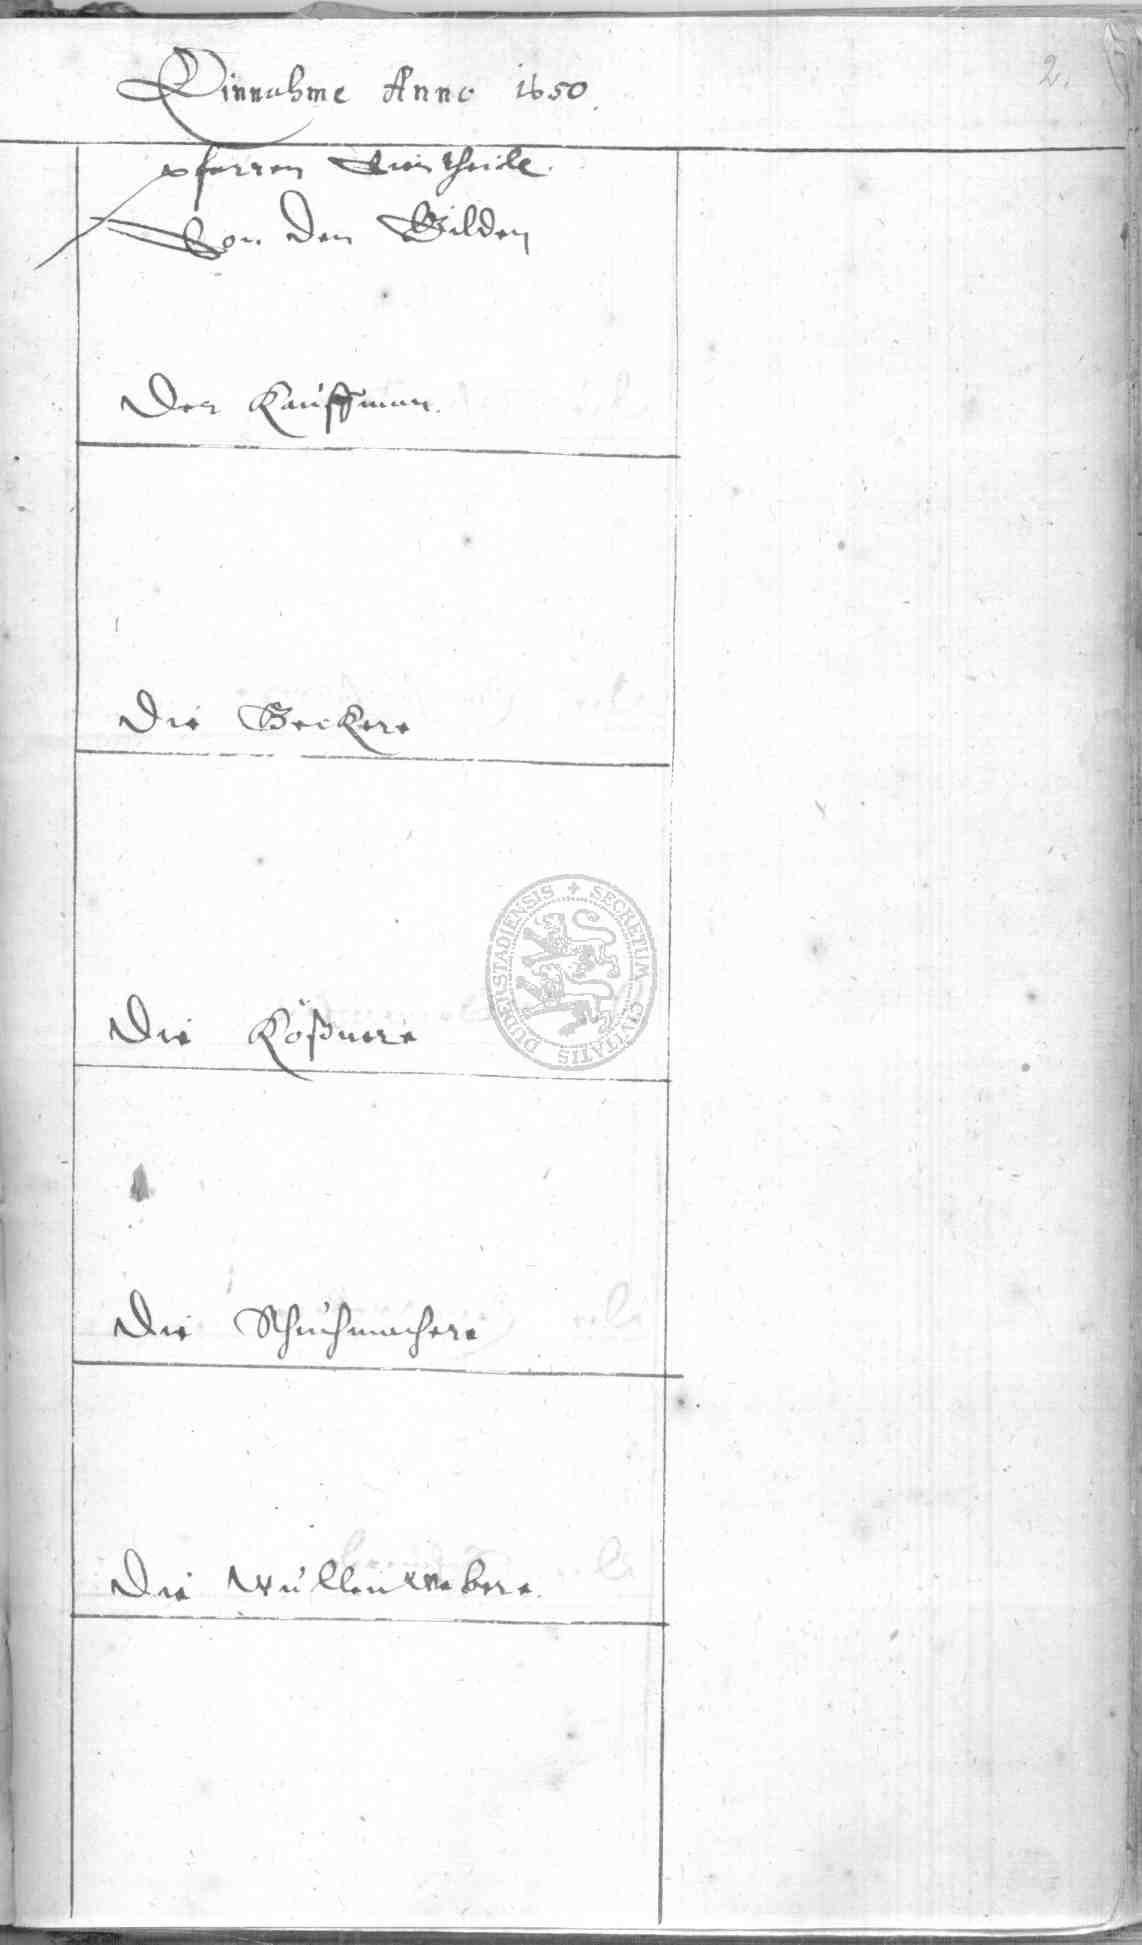 Einnahme Anno 1650.
2.
Von den Gilden
Der Kauffman.
Die Beckere
Die Kößnere
Die Schuhmachere
Die Wüllenwebere.
SECRETUM CIVITATIS DUDERSTADIENSIS